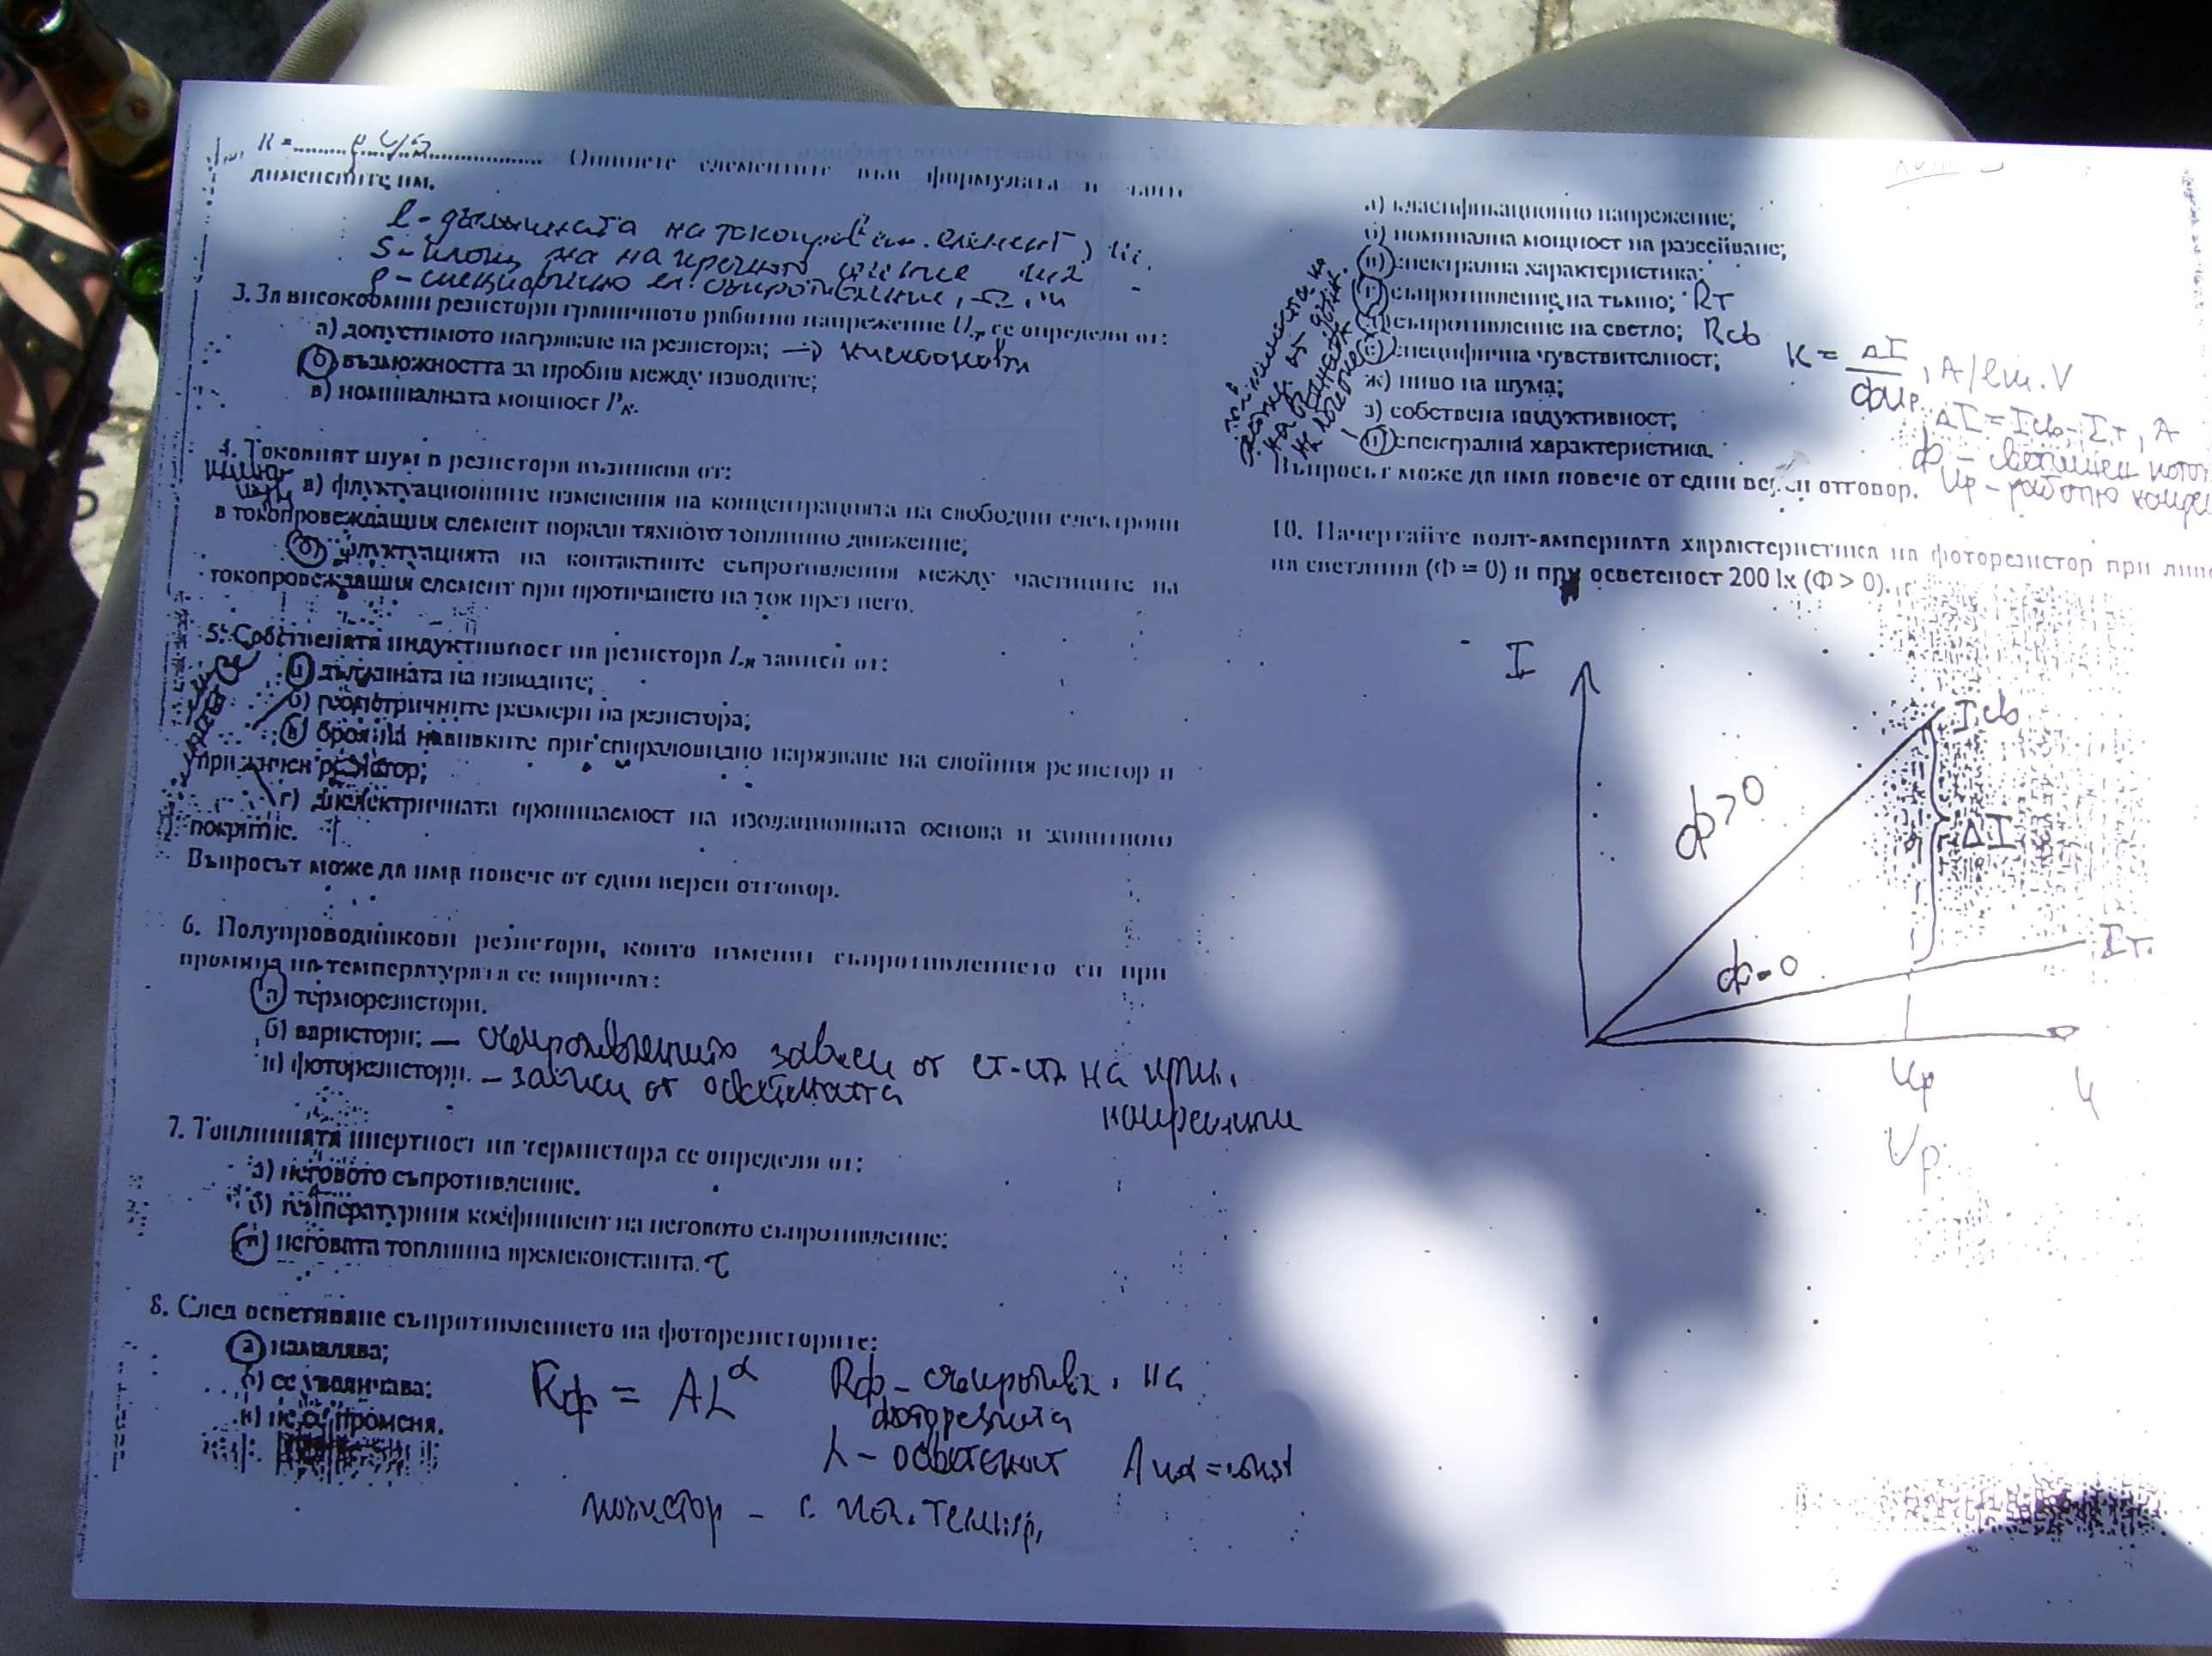 R = ρ L/S Опишете елементите във формулата и
дименсиите им.
l - дължината на токопров. елемент, m.
S - площ на напречното сечение m2
ρ - специфично ел. съпротивление, Ω.m
3. За високоомни резистори граничното работно напрежение Uгр се определя от:
а) допустимото нагряване на резистора; → нискоомни
б) възможността за пробив между изводите;
в) номиналната мощност PN.
4. Токовият шум в резистора възниква от:
а) флуктуационните изменения на концентрацията на свободни електрони
в токопровеждащия елемент поради тяхното топлинно движение;
б) флуктуацията на контактните съпротивления между частиците на
токопровеждащия елемент при протичането на ток през него.
5. Собствената индуктивност на резистора LR зависи от:
а) дължината на изводите;
б) геометричните размери на резистора;
в) броя на навивките при спираловидно нарязване на слойния резистор и
при жичен резистор;
г) диелектричната проницаемост на изолационната основа и защитното
покритие.
Въпросът може да има повече от един верен отговор.
6. Полупроводникови резистори, които изменят съпротивлението си при
промяна на температурата се наричат:
а) терморезистори.
б) варистори; — съпротивлението зависи от ст-ста на прил.
напрежение
в) фоторезистори. — зависи от осветеността
7. Топлинната инертност на термистора се определя от:
а) неговото съпротивление.
б) температурния коефициент на неговото съпротивление;
в) неговата топлинна времеконстанта. τ
8. След осветяване съпротивлението на фоторезисторите:
а) намалява;
б) се увеличава;
в) не се променя.
Rф = AL^α Rф - съпротивл. на
фоторезистора
L - осветеност A и α = const
позистор - с пол. темпер.
а) класификационно напрежение;
б) номинална мощност на разсейване;
в) спектрална характеристика;
г) съпротивление на тъмно; Rт
д) съпротивление на светло; Rсв
е) специфична чувствителност; K = ΔI / ΦUр, A/lm.V
ж) ниво на шума;
з) собствена индуктивност; ΔI = Iсв - Iт, A
и) спектрална характеристика. Φ - светлинен
Въпросът може да има повече от един верен отговор. Uр - работно
10. Начертайте волт-амперната характеристика на фоторезистор при
на светлина (Ф = 0) и при осветеност 200 lx (Ф > 0).
I
Iсв
Φ>0
ΔI
Φ=0
Iт
Uр
U
Uр